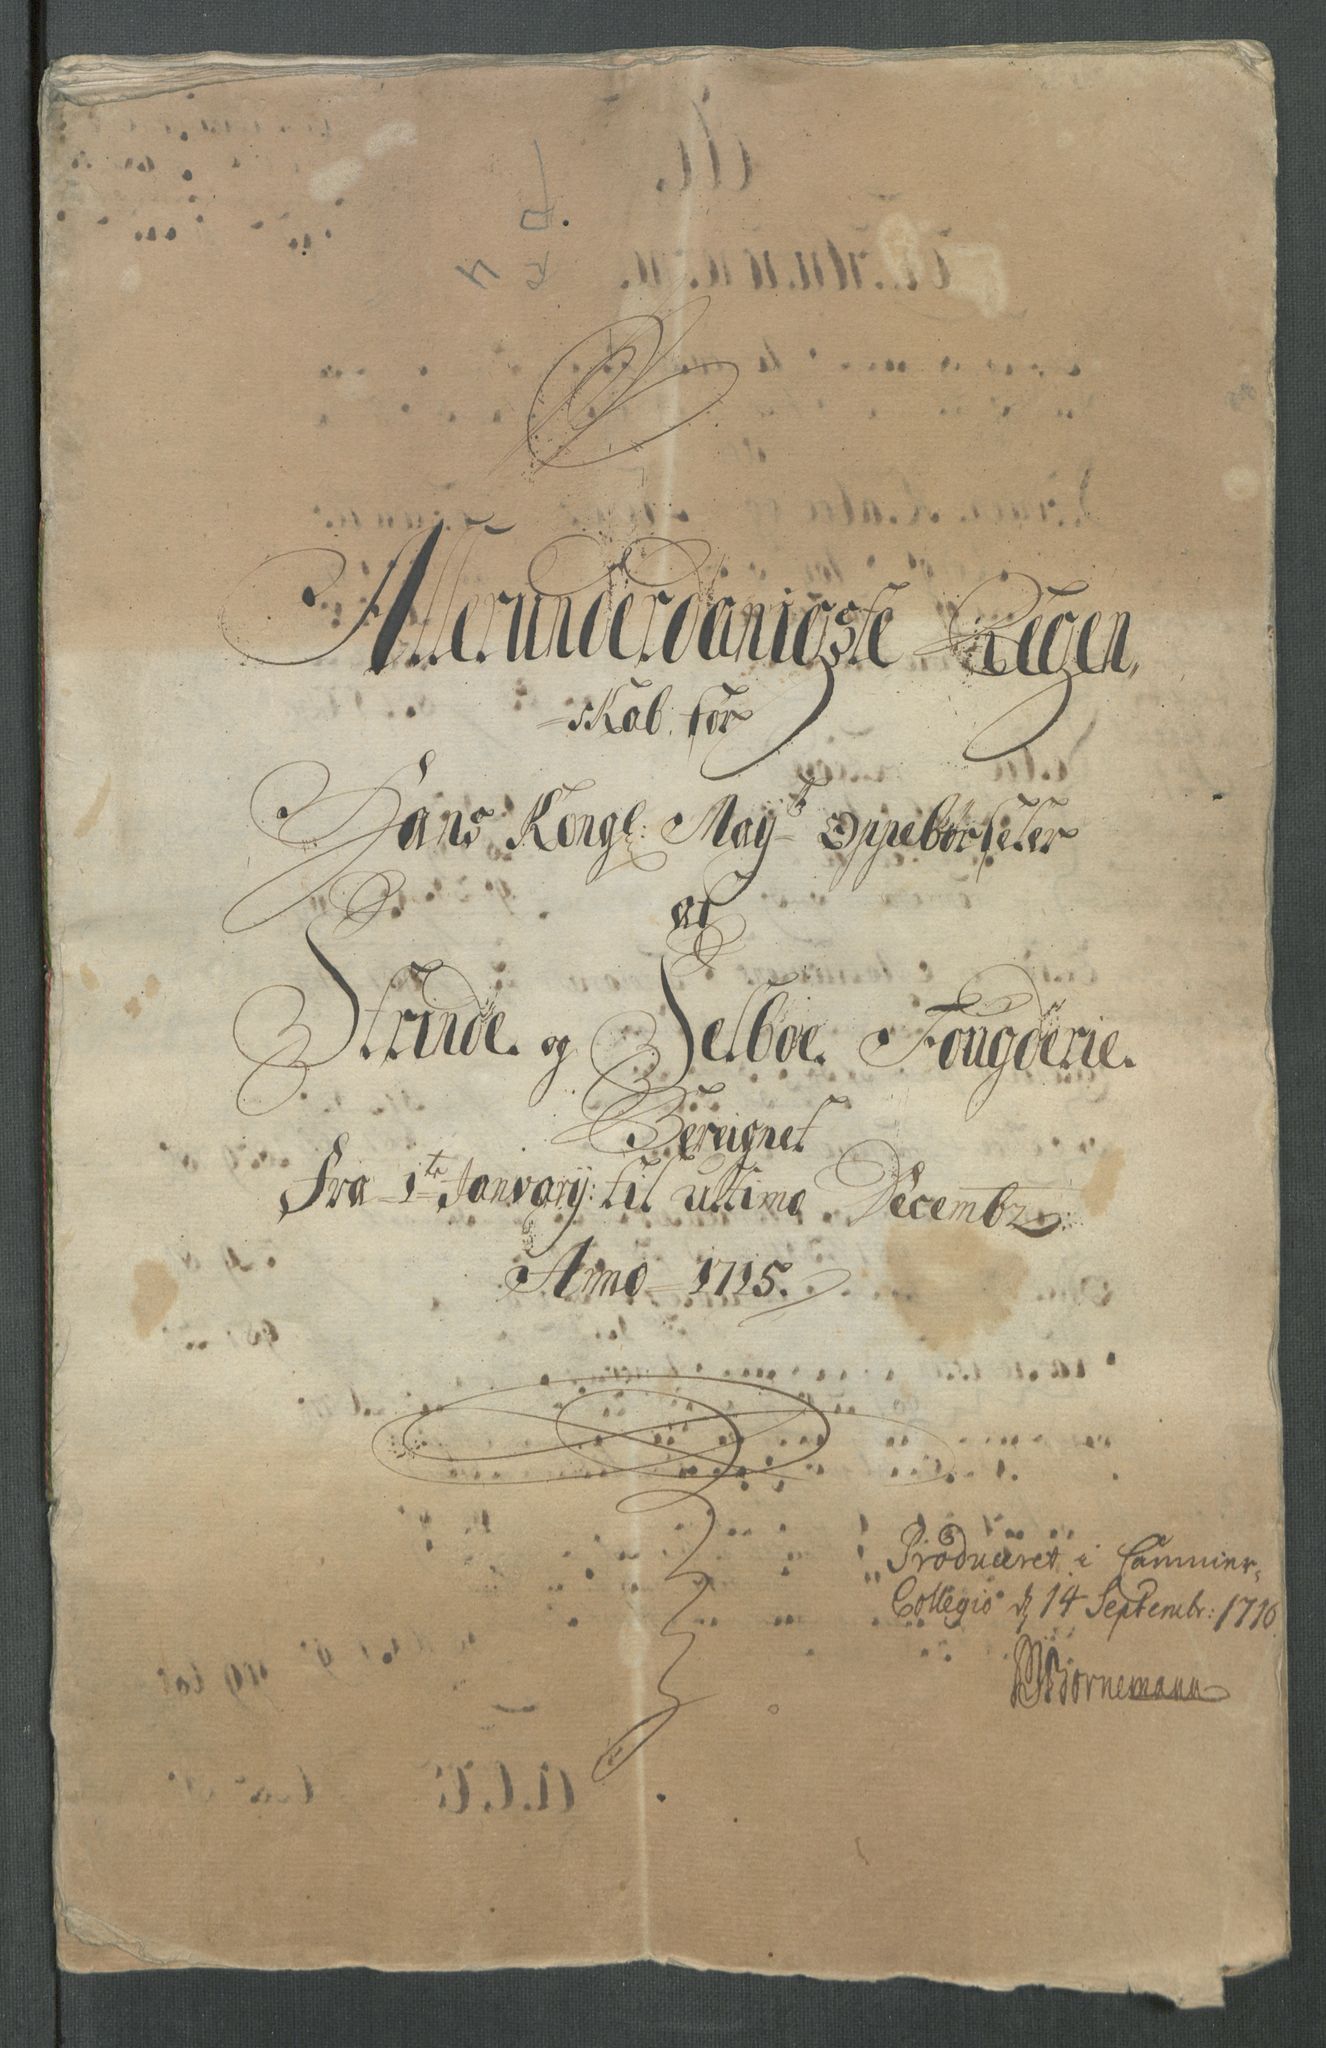 Allerunderdanigste Regen,
skab for
Hans Kongl: Mayts Oppebørseler
af
Strinde og Selboe Fougderie.
Bereignet
Fra 1te January til ultimo Decembr:
Anno 1715.
Produceret i Cammer,
Collegio d 14 Septembr: 1716
Bornemann